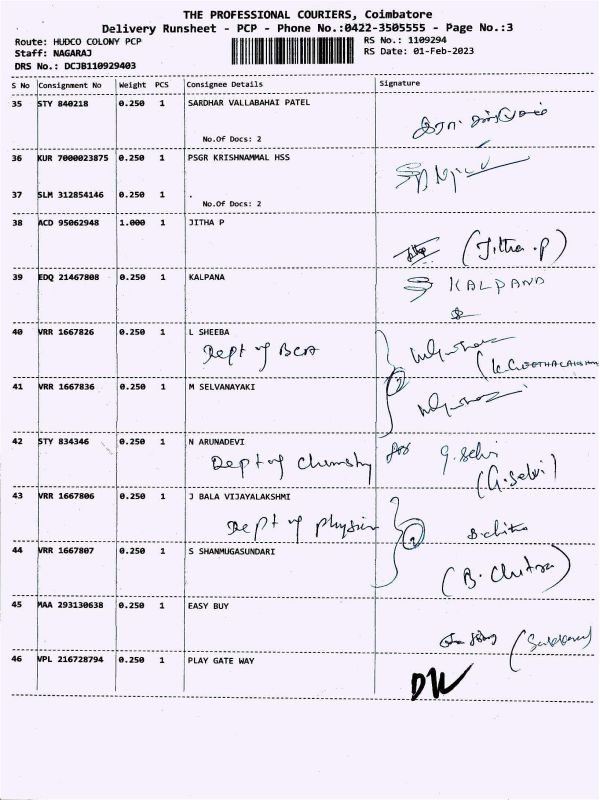 THE PROFESSIONAL COURIERS, Coimbatore
Delivery Runsheet - PCP - Phone No.:0422-3505555 - Page No.:3
Route: HUDCO COLONY PCP
Staff: NAGARAJ
DRS No.: DCJB110929403
RS No.: 1109294
RS Date: 01-Feb-2023
S No Consignment No Weight PCS Consignee Details Signature
35 STY 840218 0.250 1 SARDHAR VALLABAHAI PATEL
No.Of Docs: 2
36 KUR 7000023875 0.250 1 PSGR KRISHNAMMAL HSS
37 SLM 312854146 0.250 1 .
No.Of Docs: 2
38 ACD 95062948 1.000 1 JITHA P
(Jitha .P)
39 EDQ 21467808 0.250 1 KALPANA
KALPANA
40 VRR 1667826 0.250 1 L SHEEBA
Dept of BCA
41 VRR 1667836 0.250 1 M SELVANAYAKI
2
42 STY 834346 0.250 1 N ARUNADEVI
Dept of Chemistry for G. Selvi
(G. Selvi)
43 VRR 1667806 0.250 1 J BALA VIJAYALAKSHMI
Dept of Physics 2 B. Chitra
44 VRR 1667807 0.250 1 S SHANMUGASUNDARI
(B. Chitra)
45 MAA 293130638 0.250 1 EASY BUY
46 VPL 216728794 0.250 1 PLAY GATE WAY